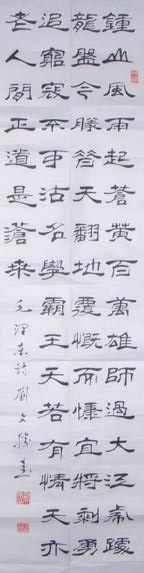 鍾山風雨起蒼黄百萬雄師過大江虎踞
龍盤今勝昔天翻地覆慨而慷宜將剩勇
追窮寇不可沽名學霸王天若有情天亦
老人間正道是蒼桑 毛澤東詩 劉文